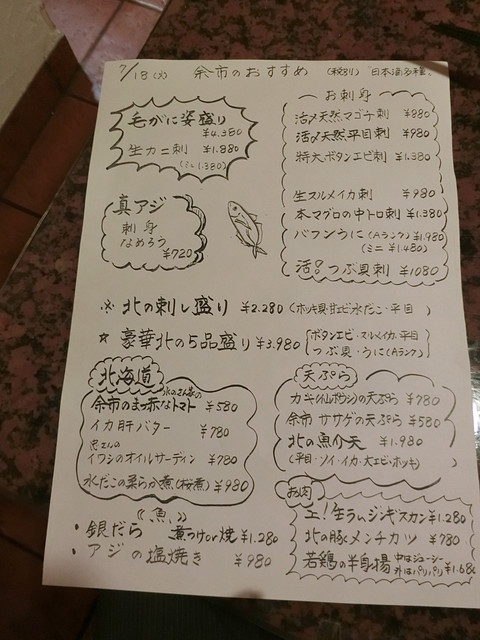 7/18(火) 余市のおすすめ (税別) 日本酒多種
毛がに姿盛り
¥4.380
生カニ刺 ¥1.880
(ミニ1.380)
真アジ
刺身
なめろう
¥720
お刺身
活〆天然マゴチ刺 ¥880
活〆天然平目刺 ¥980
特大ボタンエビ刺 ¥1.380
生スルメイカ刺 ¥980
本マグロの中トロ刺 ¥1.380
バフンうに(Aランク)¥1.980
(ミニ ¥1.480)
活つぶ貝刺 ¥1080
※ 北の刺し盛り ¥2.280 (ホッキ貝・甘エビ・水だこ・平目)
☆ 豪華北の5品盛り ¥3.980 [ボタンエビ・スルメイカ・平目
つぶ貝・うに(Aランク)]
北海道
余市のまっ赤なトマト ¥580
イカ肝バター ¥780
イワシのオイルサーディン ¥780
水だこの柔らか煮(桜煮) ¥980
天ぷら
カキ(仙ホウシ)の天ぷら ¥780
余市 ササゲの天ぷら ¥580
北の魚介天 ¥1.980
(平目・ソイ・イカ・大エビ・ホッキ)
《魚》
・銀だら 煮つけor焼 ¥1.280
・アジの塩焼き ¥980
お肉
生ラムジンギスカン¥1.280
北の豚メンチカツ ¥780
若鶏の半身揚 中はジューシー
外はパリパリ ¥1.680